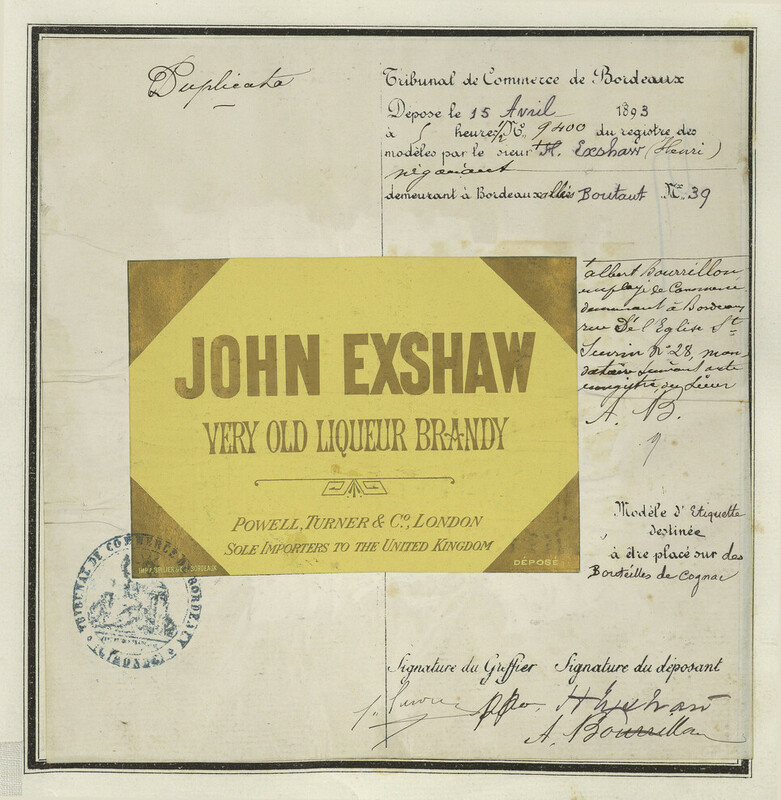 Duplicata
Tribunal de Commerce de Bordeaux
Déposé le 15 Avril 1893
à 5 heures 1/2 N° 9400 du registre des
modèles par le sieur H. Exshaw (Henri)
négociant
demeurant à Bordeaux allées Boutaut N° 39
albert Bourrillon
employé de Commerce
demeurant à Bordeaux
rue De l'Eglise St
Seurin N° 28, man-
dataire suivant acte
enregistré, du sieur
A. B.
JOHN EXSHAW
VERY OLD LIQUEUR BRANDY
POWELL, TURNER & Co, LONDON
SOLE IMPORTERS TO THE UNITED KINGDOM
BORDEAUX
DÉPOSÉ
Modèle d'Etiquette
destinée
à être placé sur des
Bouteilles de Cognac
TRIBUNAL DE COMMERCE DE BORDEAUX
(GIRONDE)
Signature du Greffier Signature du déposant
ppon H Exshaw
A. Bourrillon